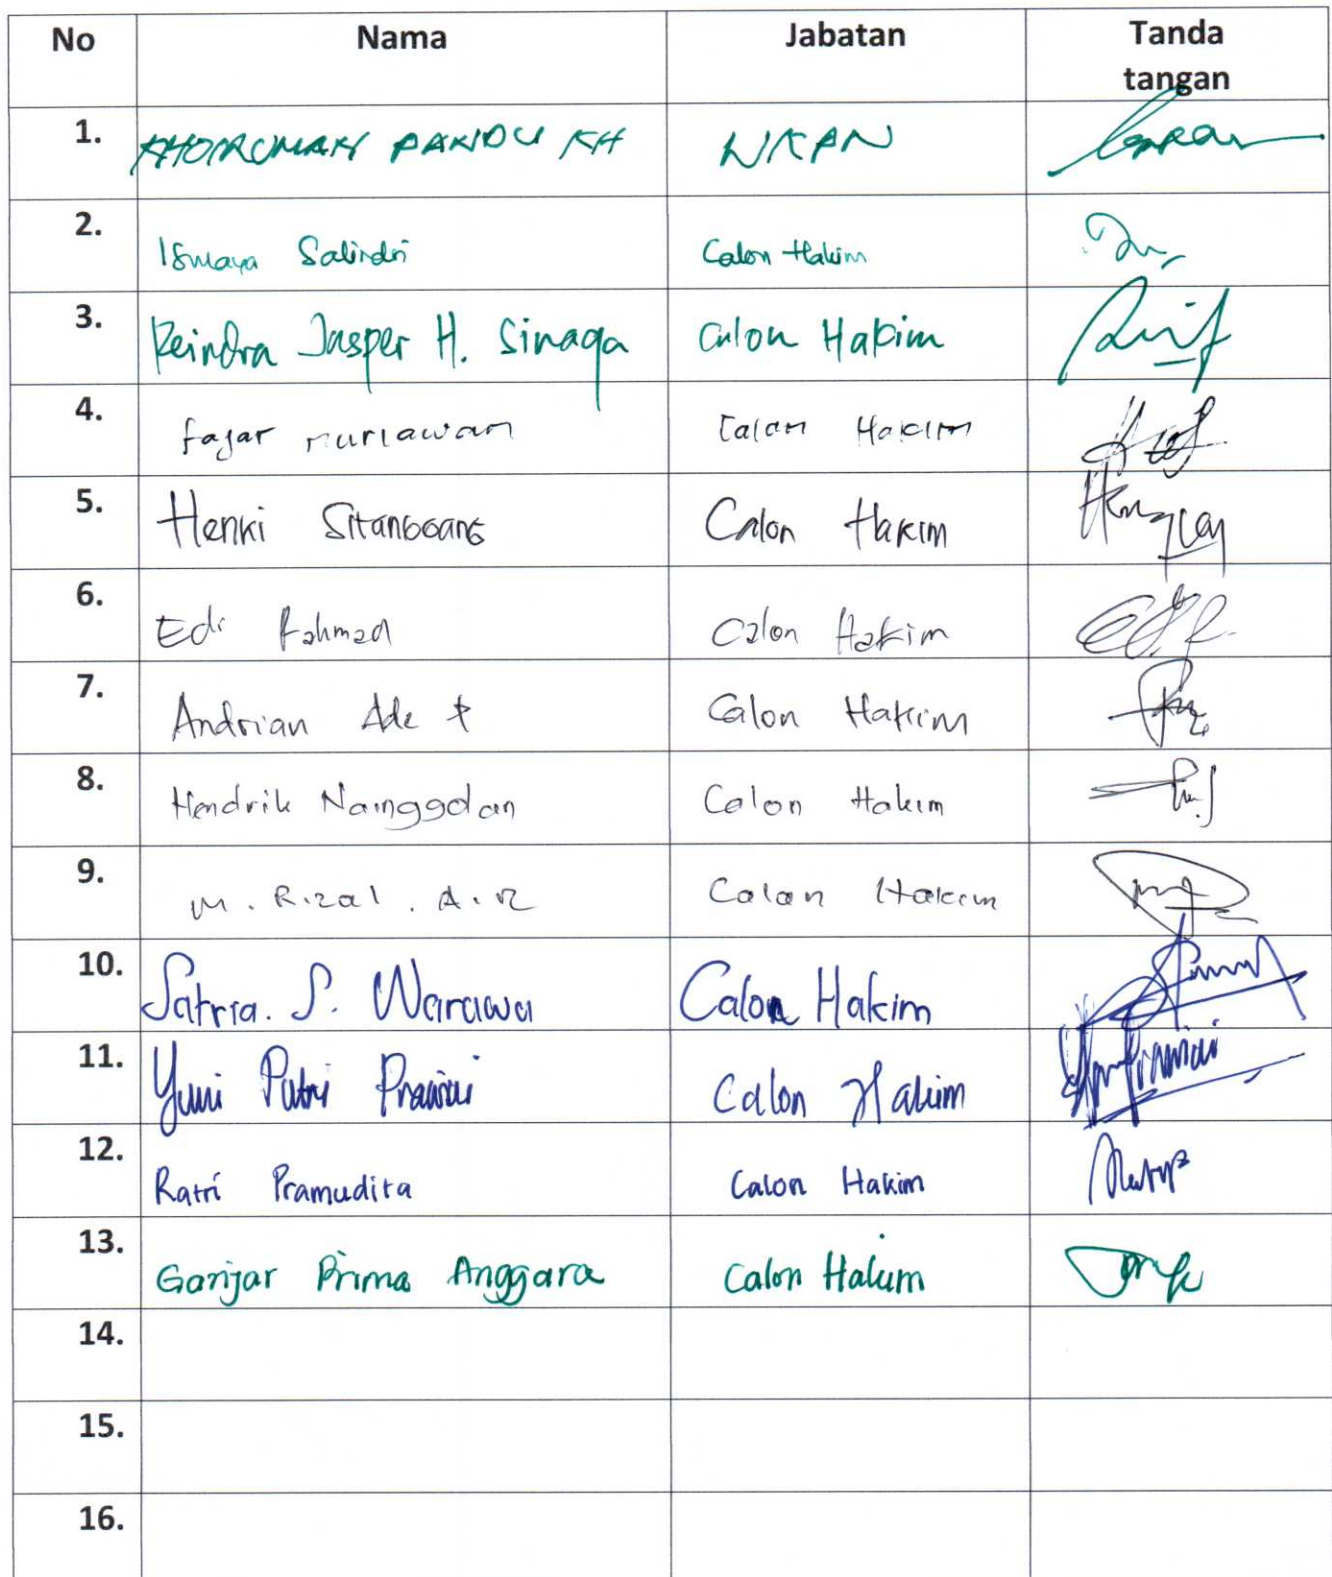 No Nama Jabatan Tanda
tangan
1. KHOIRUMAN PANDU KH WKPN
2. Ismaya Salindri Calon Hakim
3. Reindra Jasper H. Sinaga Calon Hakim
4. fajar nuriawan Calon Hakim
5. Henki Sitanggang Calon Hakim
6. Edi Rahmad Calon Hakim
7. Andrian Ade P Calon Hakim
8. Hendrik Nainggolan Calon Hakim
9. M. Rizal. A. R Calon Hakim
10. Satria. S. Warawa Calon Hakim
11. Yuni Putri Calon Hakim
12. Ratri Pramudita Calon Hakim
13. Ganjar Prima Anggara Calon Hakim
14.
15.
16.